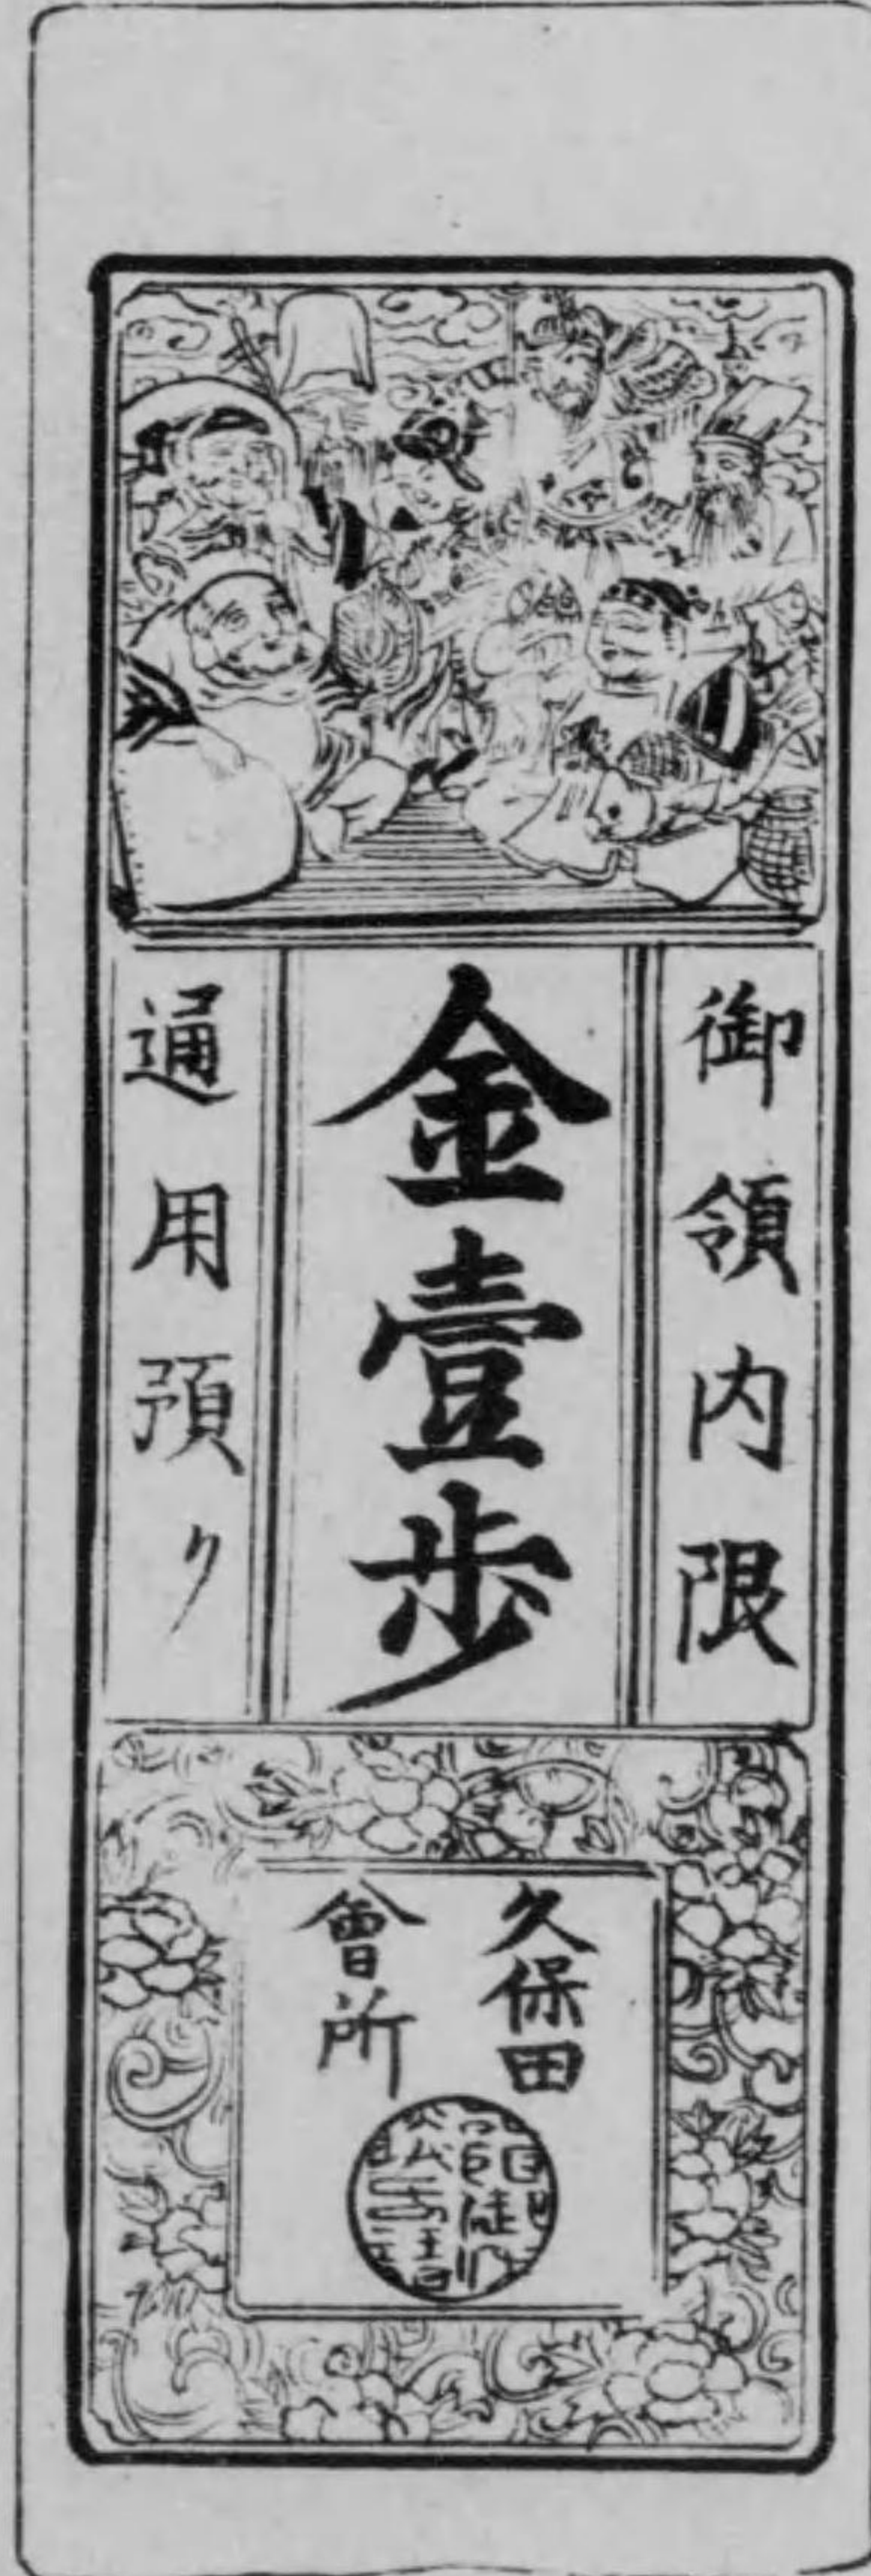 御領内限
金壹歩
通用預り
久保田
會所